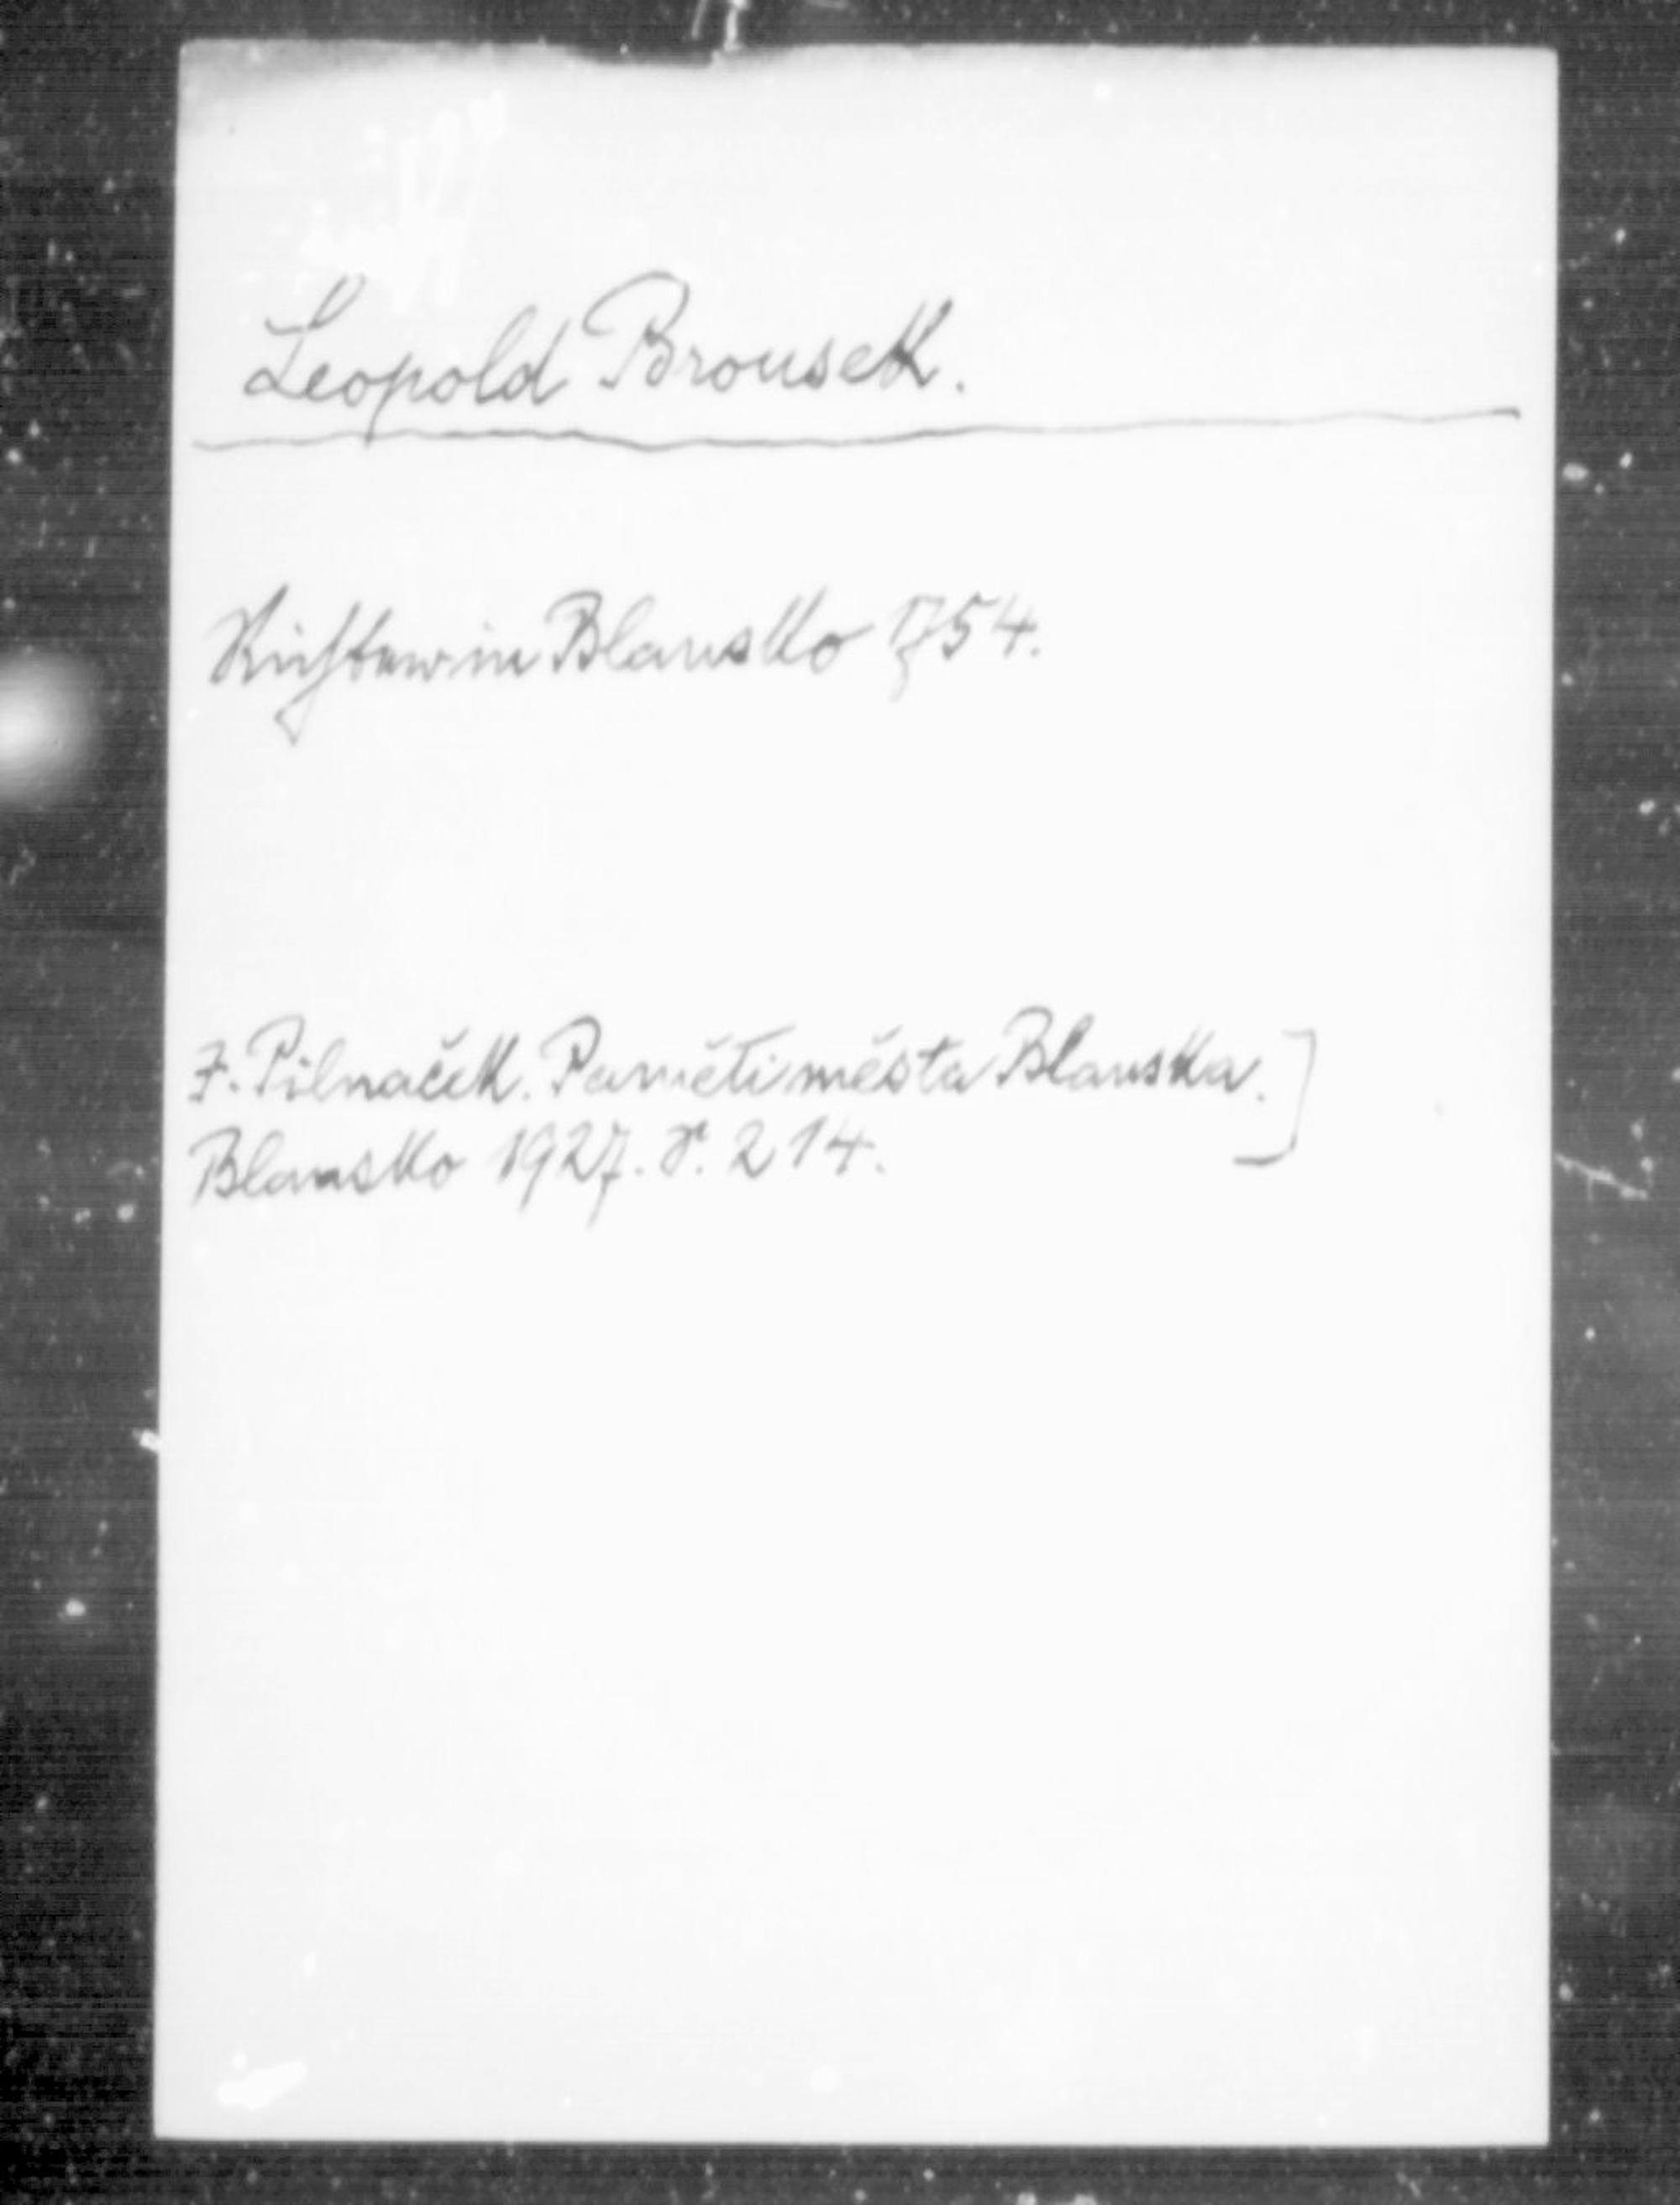 Leopold Brousek.
Richter in Blansko 1754.
J. Pilnaček. Paměti města Blanska.]
Blansko 1927. S. 214.